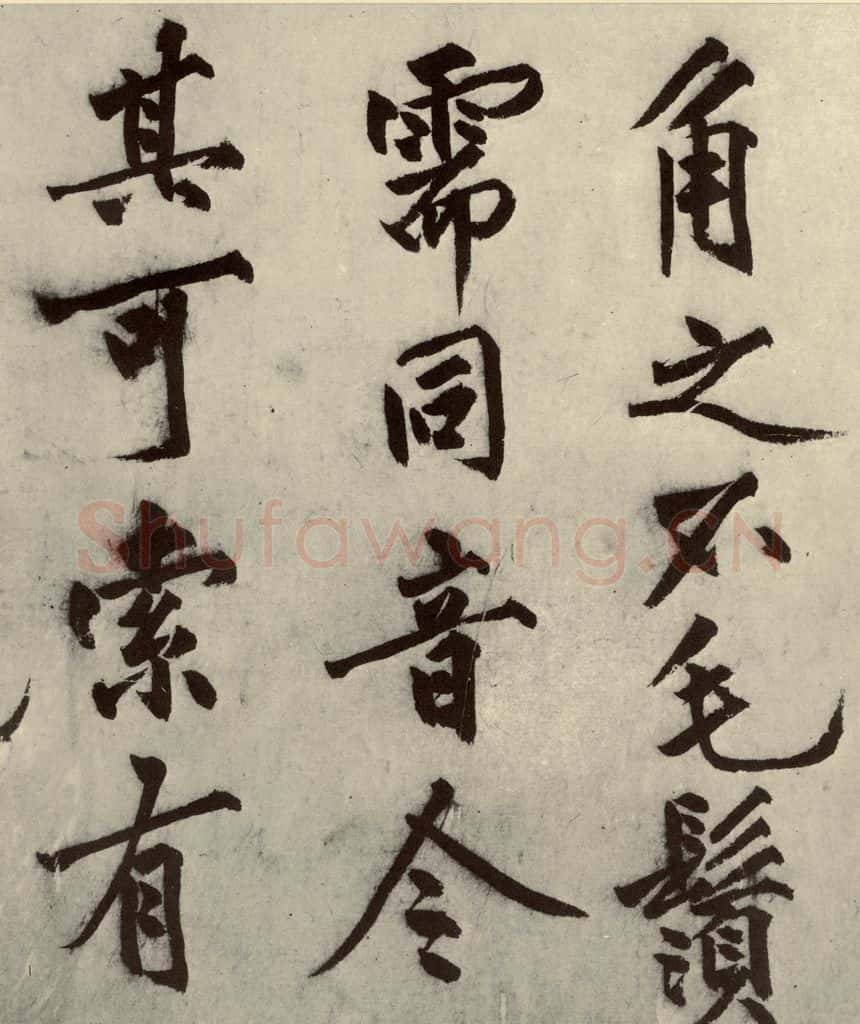 角之不毛鬚
需同音今
其可索有
Shufawang.CN